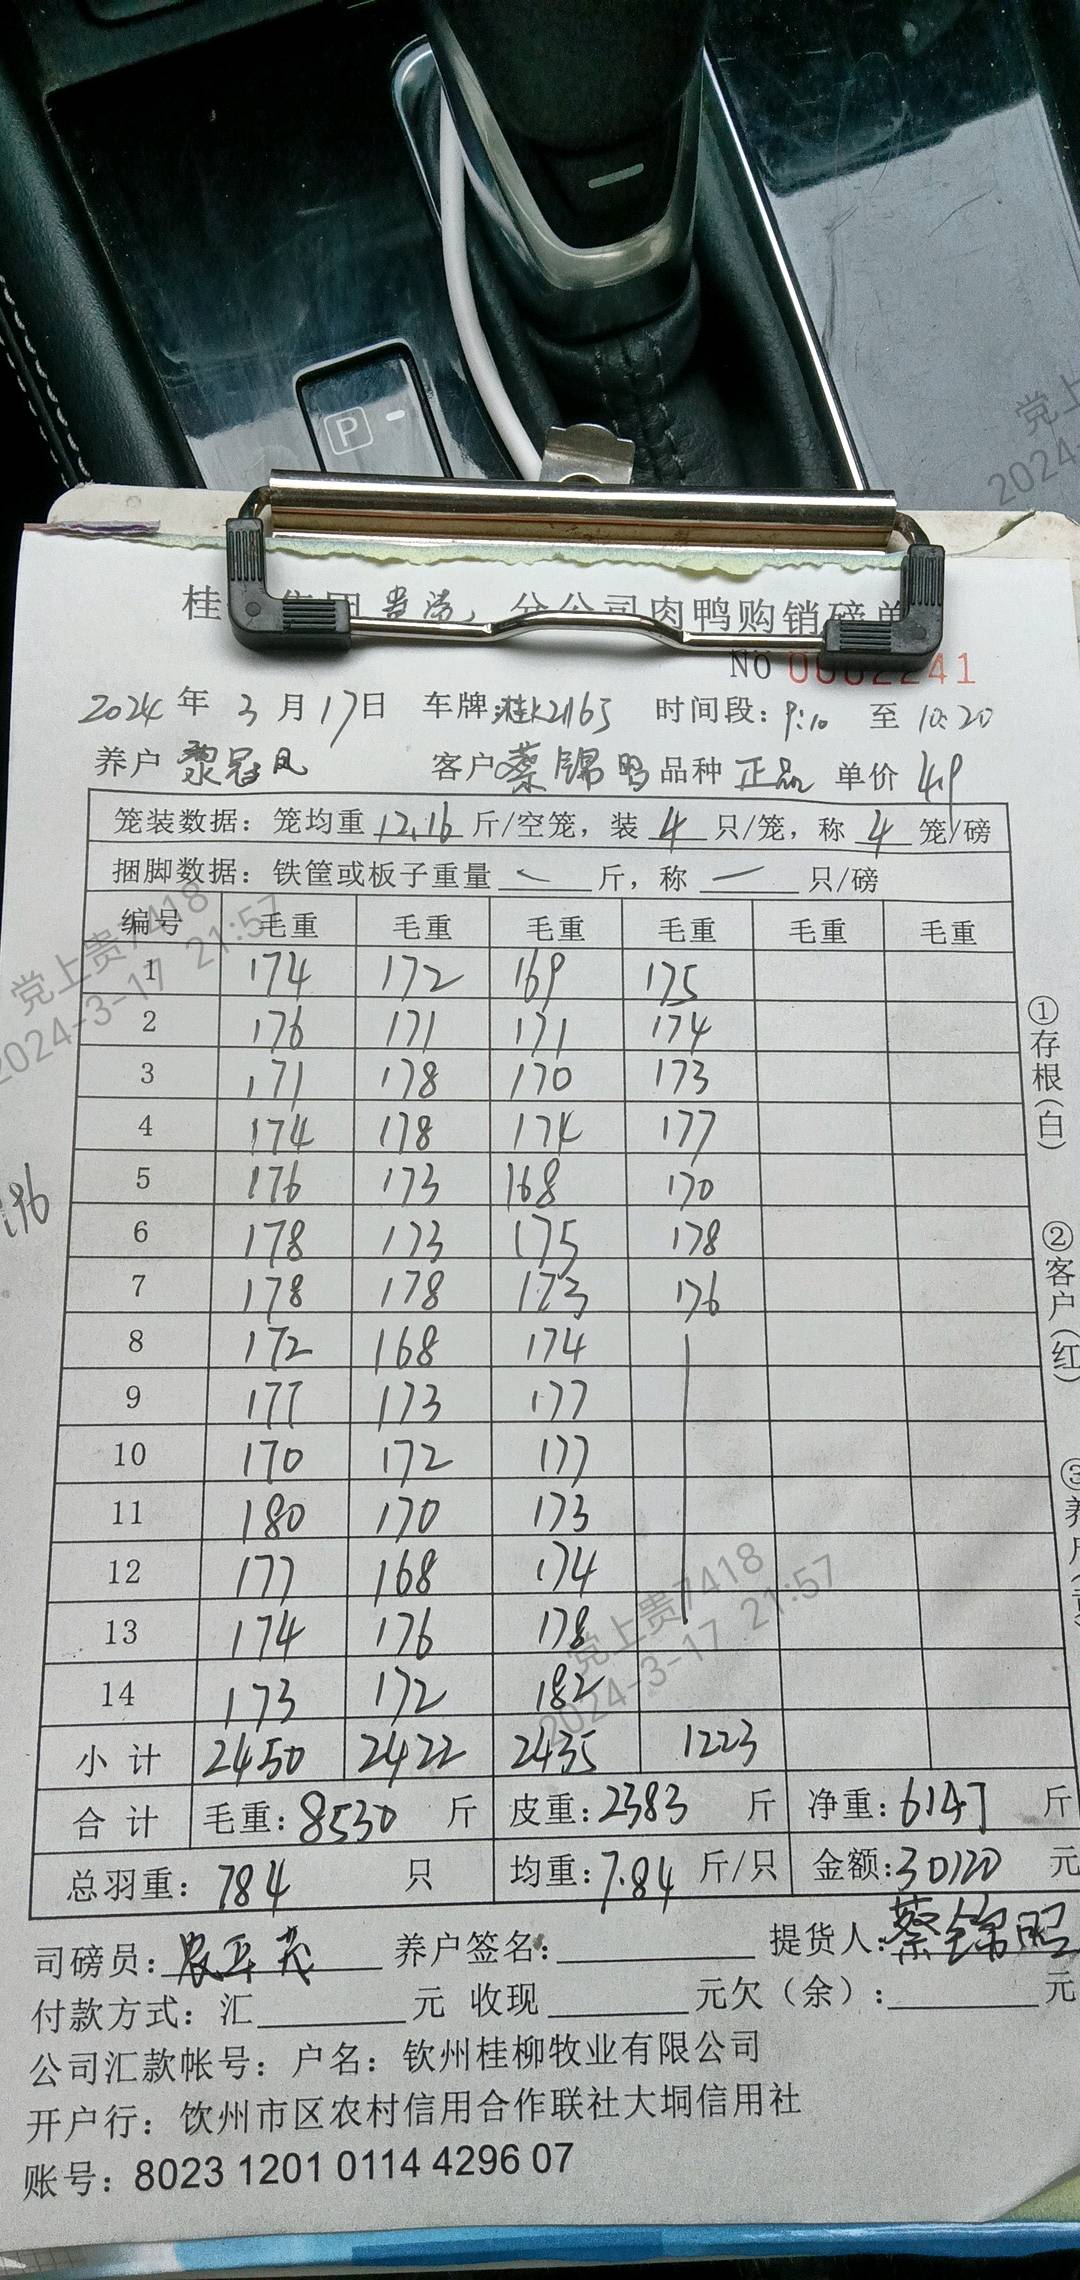 P
党上
2024-
桂 集团贵港分公司肉鸭购销磅单
No 0002241
2024 年 3 月 17 日 车牌:桂K21165 时间段: 9:10 至 10:20
养户 黎冠凤 客户 蔡锦昭 品种 正品 单价 4.9
笼装数据: 笼均重 12.16 斤/空笼, 装 4 只/笼, 称 4 笼/磅
捆脚数据: 铁筐或板子重量 — 斤, 称 — 只/磅
编号 毛重 毛重 毛重 毛重 毛重 毛重
1 174 172 169 175
2 176 171 171 174
3 171 178 170 173
4 174 178 174 177
5 176 173 168 170
6 178 173 175 178
7 178 178 173 176
8 172 168 174
9 177 173 177
10 170 172 177
11 180 170 173
12 177 168 174
13 174 176 178
14 173 172 182
小 计 2450 2422 2435 1223
合 计 毛重: 8530 斤 皮重: 2383 斤 净重: 6147 斤
总羽重: 784 只 均重: 7.84 斤/只 金额: 30120 元
司磅员: 养户签名: 提货人: 蔡锦昭
付款方式: 汇 元 收现 元欠(余): 元
公司汇款帐号: 户名: 钦州桂柳牧业有限公司
开户行: 钦州市区农村信用合作联社大垌信用社
账号: 8023 1201 0114 4296 07
①存根(白)
②客户(红)
③养户
196
党上贵7418
2024-3-17 21:57
党上贵7418
2024-3-17 21:57